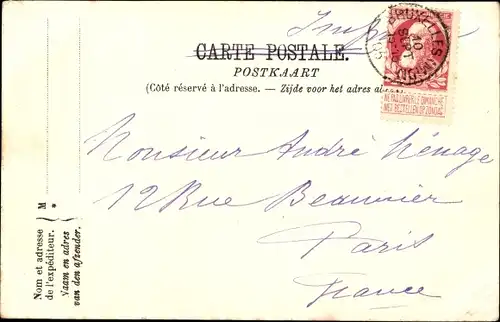 Imprimé
CARTE POSTALE.
POSTKAART
(Côté réservé à l'adresse. — Zijde voor het adres
BRUXELLES
10
SEPT
NE PAS LIVRER LE DIMANCHE
NIET BESTELLEN OP ZONDAG
Monsieur André Ménage
12 Rue Beaunier
Paris
France
M
*
Nom et adresse
de l'expéditeur.
Naam en adres
van den afzender.